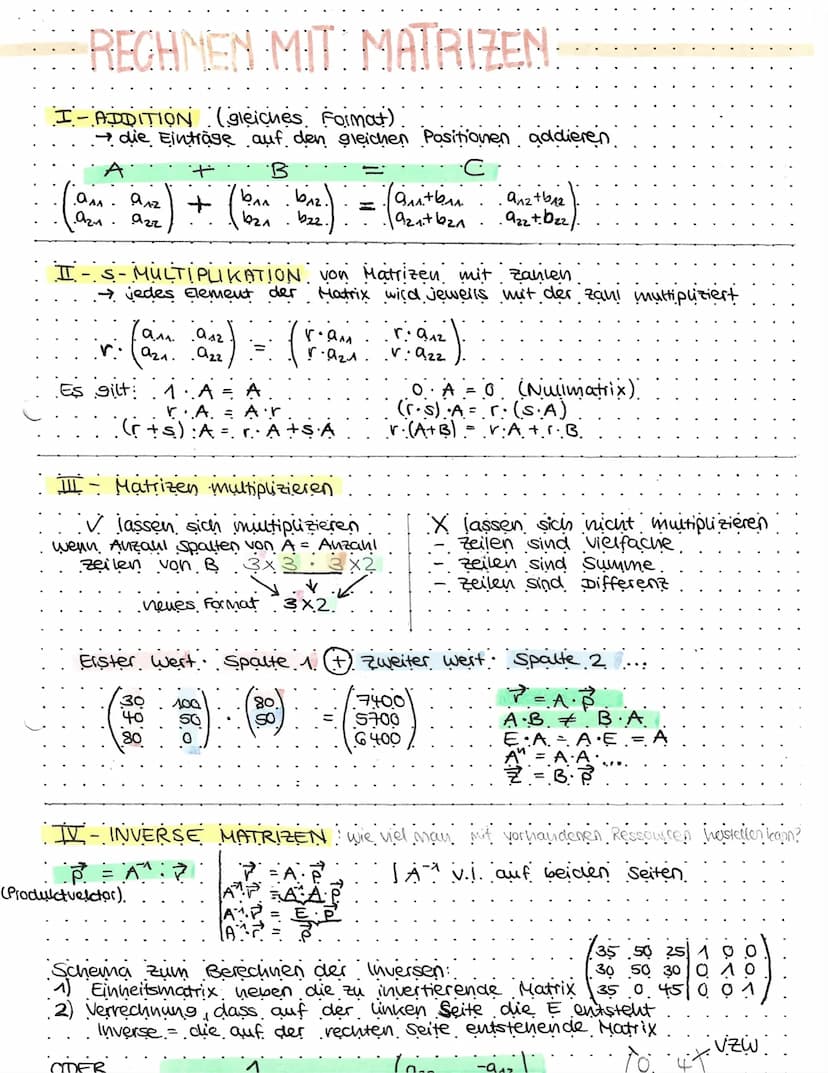 RECHNEN MIT MATRIZEN
I - ADDITION (gleiches Format)
→ die Einträge auf den gleichen Positionen addieren
A + B = C
(a₁₁ a₁₂) + (b₁₁ b₁₂) = (a₁₁+b₁₁ a₁₂+b₁₂)
(a₂₁ a₂₂) (b₂₁ b₂₂) (a₂₁+b₂₁ a₂₂+b₂₂)
II - S-MULTIPLIKATION von Matrizen mit Zahlen
→ jedes Element der Matrix wird jeweils mit der Zahl multipliziert
r · (a₁₁ a₁₂) = (r·a₁₁ r·a₁₂)
(a₂₁ a₂₂) (r·a₂₁ r·a₂₂)
Es gilt: 1 · A = A 0 · A = 0 (Nullmatrix)
r · A = A · r (r·s) · A = r · (s·A)
(r+s) · A = r · A + s · A r · (A+B) = r · A + r · B
III - Matrizen multiplizieren
✓ lassen sich multiplizieren
wenn Anzahl Spalten von A = Anzahl
Zeilen von B 3×3 · 3×2
neues Format 3×2
X lassen sich nicht multiplizieren
- Zeilen sind Vielfache
- Zeilen sind Summe
- Zeilen sind Differenz
Erster Wert · Spalte 1 (+) Zweiter Wert · Spalte 2 ...
(30 100) · (80) = (7400)
(40 50) (50) (5700)
(80 0) (6400)
r⃗ = A · p⃗
A·B ≠ B·A
E·A = A·E = A
Aⁿ = A·A·...
z⃗ = B·p⃗
IV - INVERSE MATRIZEN : wie viel man mit vorhandenen Ressourcen herstellen kann?
p⃗ = A⁻¹ · r⃗
(Produktvektor)
r⃗ = A · p⃗ | A⁻¹ v.l. auf beiden Seiten
A⁻¹·r⃗ = A⁻¹·A·p⃗
A⁻¹·r⃗ = E · p⃗
A⁻¹·r⃗ = p⃗
Schema zum Berechnen der Inversen:
1) Einheitsmatrix neben die zu invertierende Matrix
(35 50 25 | 1 0 0)
(30 50 30 | 0 1 0)
(35 0 45 | 0 0 1)
2) Verrechnung, dass auf der linken Seite die E entsteht
Inverse = die auf der rechten Seite entstehende Matrix
VZW
ODER 1 -a₁₂